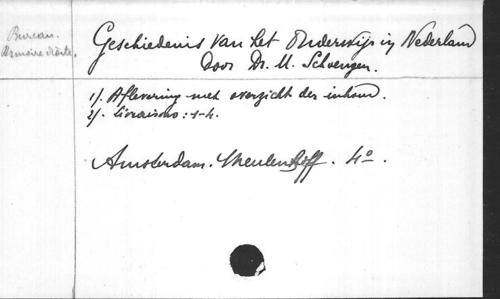 Bureau.
Armoire droite.
Geschiedenis van het Onderwijs in Nederland
Door Dr. M. Schoengen.
1/. Aflevering met overzicht der inhoud.
2/. Livraisons: 1-4.
Amsterdam. Meulenhoff. 4º.